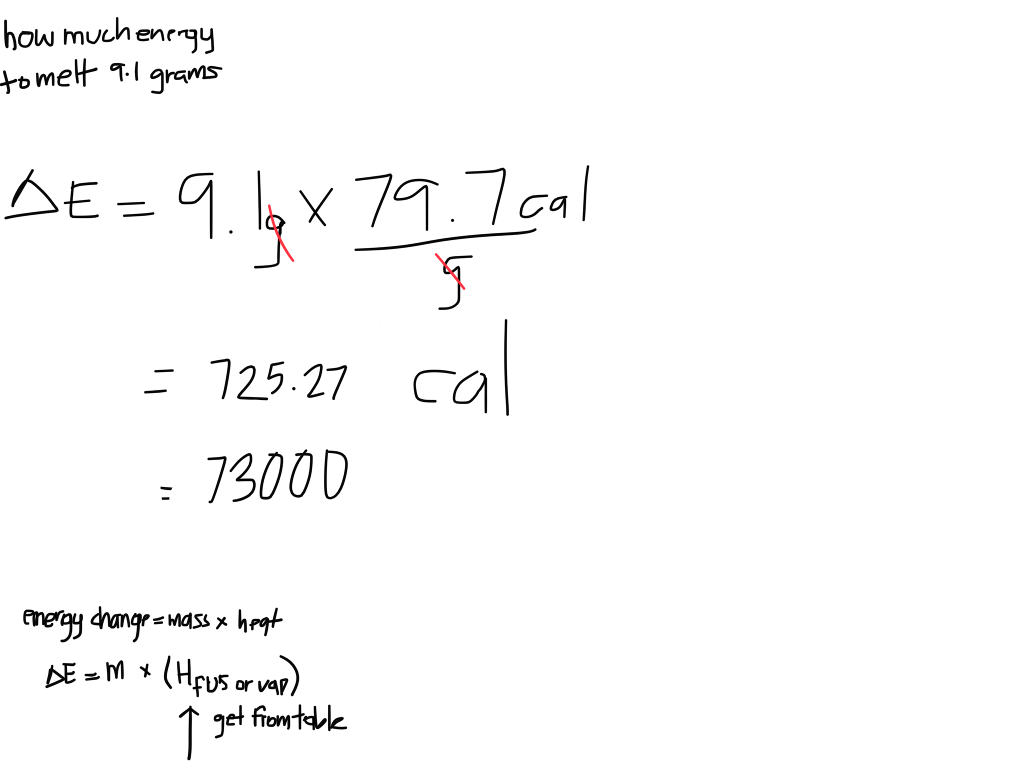 how much energy
to melt 9.1 grams
ΔE = 9.1g × 79.7 cal
g
= 725.27 cal
= 73000
energy change = mass × heat
ΔE = m × (Hfus or vap)
↑ get from table